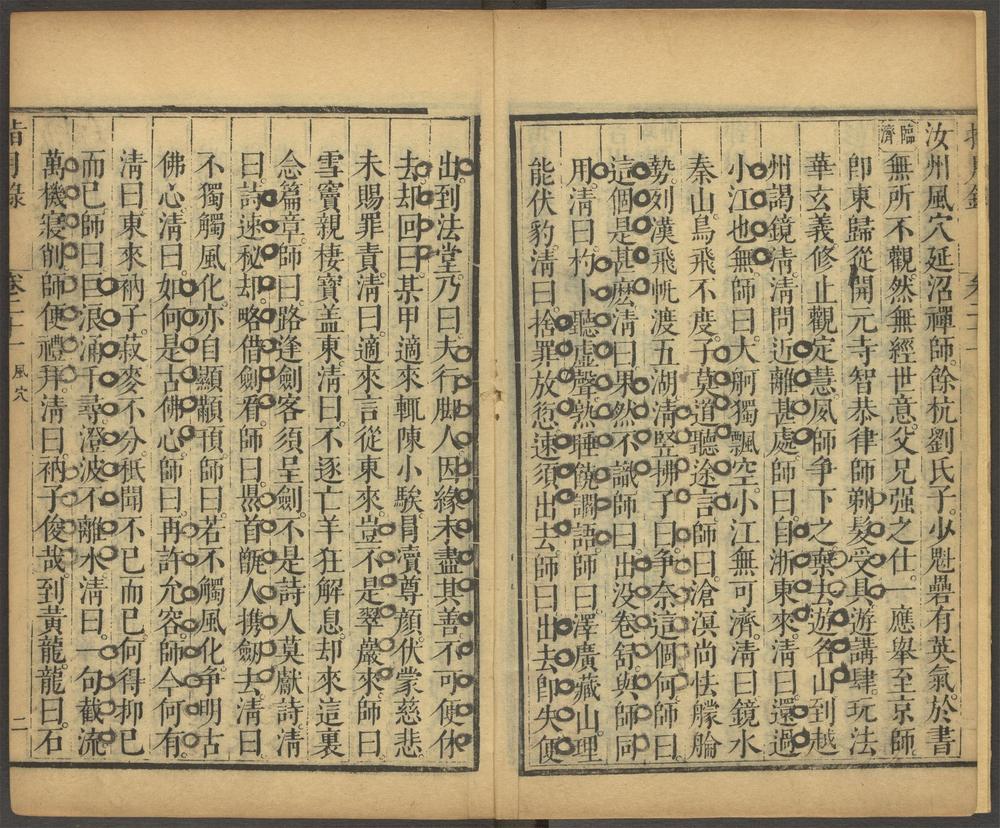 汝州風穴延沼禪師餘杭劉氏子少魁礨有英氣於書
臨濟
無所不觀然無經世意父兄强之仕一應舉至京師
卽東歸從開元寺智恭律師剃髮受具遊講肆玩法
華玄義修止觀定慧夙師爭下之棄去遊名山到越
州謁鏡清清問近離甚處師曰自浙東來清曰還過
小江也無師曰大舸獨飄空小江無可濟清曰鏡水
秦山鳥飛不度子莫道聽途言師曰滄溟尚怯艨艟
勢列漢飛帆渡五湖清竪拂子曰爭奈這個何師曰
這個是甚麽清曰果然不識師曰出没卷舒與師同
用清曰杓卜聽虛聲熟睡饒讇語師曰澤廣藏山理
能伏豹清曰捨罪放愆速須出去師曰出去卽失便
出到法堂乃曰夫行脚人因緣未盡其善不可便休
去却回曰某甲適來輒陳小騃冐瀆尊顏伏蒙慈悲
未賜罪責清曰適來言從東來豈不是翠巖來師曰
雪竇親棲寶盖東清曰不逐亡羊狂解息却來這裏
念篇章師曰路逢劍客須呈劍不是詩人莫獻詩清
曰詩速秘却略借劍看師曰㬎首甑人携劍去清曰
不獨觸風化亦自顯顢頇師曰若不觸風化爭明古
佛心清曰如何是古佛心師曰再許允容師今何有
清曰東來衲子菽麥不分秪聞不已而已何得抑已
而已師曰巨浪涌千尋澄波不離水清曰一句截流
萬機寢削師便禮拜清曰衲子俊哉到黃龍龍曰石
指月錄 卷二十一 風穴 二